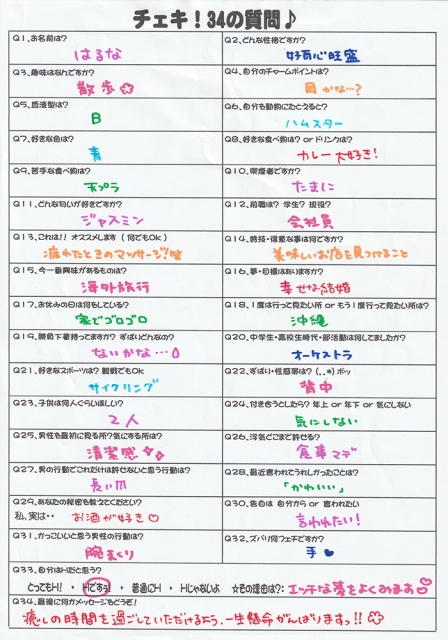 チェキ！34の質問♪
Q1、お名前は？
はるな
Q2、どんな性格ですか？
好奇心旺盛
Q3、趣味はなんですか？
散歩
Q4、自分のチャームポイントは？
目かな…？
Q5、血液型は？
B
Q6、自分を動物にたとえると？
ハムスター
Q7、好きな色は？
青
Q8、好きな食べ物は？ or ドリンクは？
カレー大好き！
Q9、苦手な食べ物は？
天プラ
Q10、喫煙者ですか？
たまに
Q11、どんな匂いが好きですか？
ジャスミン
Q12、前職は？ 学生？ 現役？
会社員
Q13、これは!! オススメします（何でもOk）
疲れたときのマッサージ!!
Q14、特技・得意な事は何ですか？
美味しいお店を見つけること
Q15、今一番興味があるものは？
海外旅行
Q16、夢・目標はありますか？
幸せな結婚
Q17、お休みの日は何をしている？
家でゴロゴロ
Q18、1度は行って見たい所 or もう1度行って見たい所は？
沖縄
Q19、勝負下着持ってますか？ ずばりどんなの？
ないかな…
Q20、中学生・高校生時代・部活動は何してましたか？
オーケストラ
Q21、好きなスポーツは？ 観戦でもOK
サイクリング
Q22、ずばり・性感帯は？（..*）ポッ
背中
Q23、子供は何人ぐらいほしい？
2人
Q24、付き合うとしたら？ 年上 or 年下 or 気にしない
気にしない
Q25、男性を最初に見る所？気にする所は？
清潔感
Q26、浮気どこまで許せる？
食事マデ
Q27、男の行動でこれだけは許せないと思う行動は？
長い爪
Q28、最近言われてうれしかったことは？
「かわいい」
Q29、あなたの秘密を教えてください？
私、実は・・ お酒が好き♡
Q30、告白は 自分から or 言われたい
言われたい！
Q31、かっこいいと思う男性の行動は？
腕まくり
Q32、ズバリ何フェチですか？
手♥
Q33、自分はHだと思う？
とってもH！ ・ Hですっ！ ・ 普通にH ・ Hじゃないよ ☆その理由は？：エッチな夢をよくみます♡
Q34、最後に何かメッセージもどうぞ！
癒しの時間を過ごしていただけるよう、一生懸命がんばりますっ!!